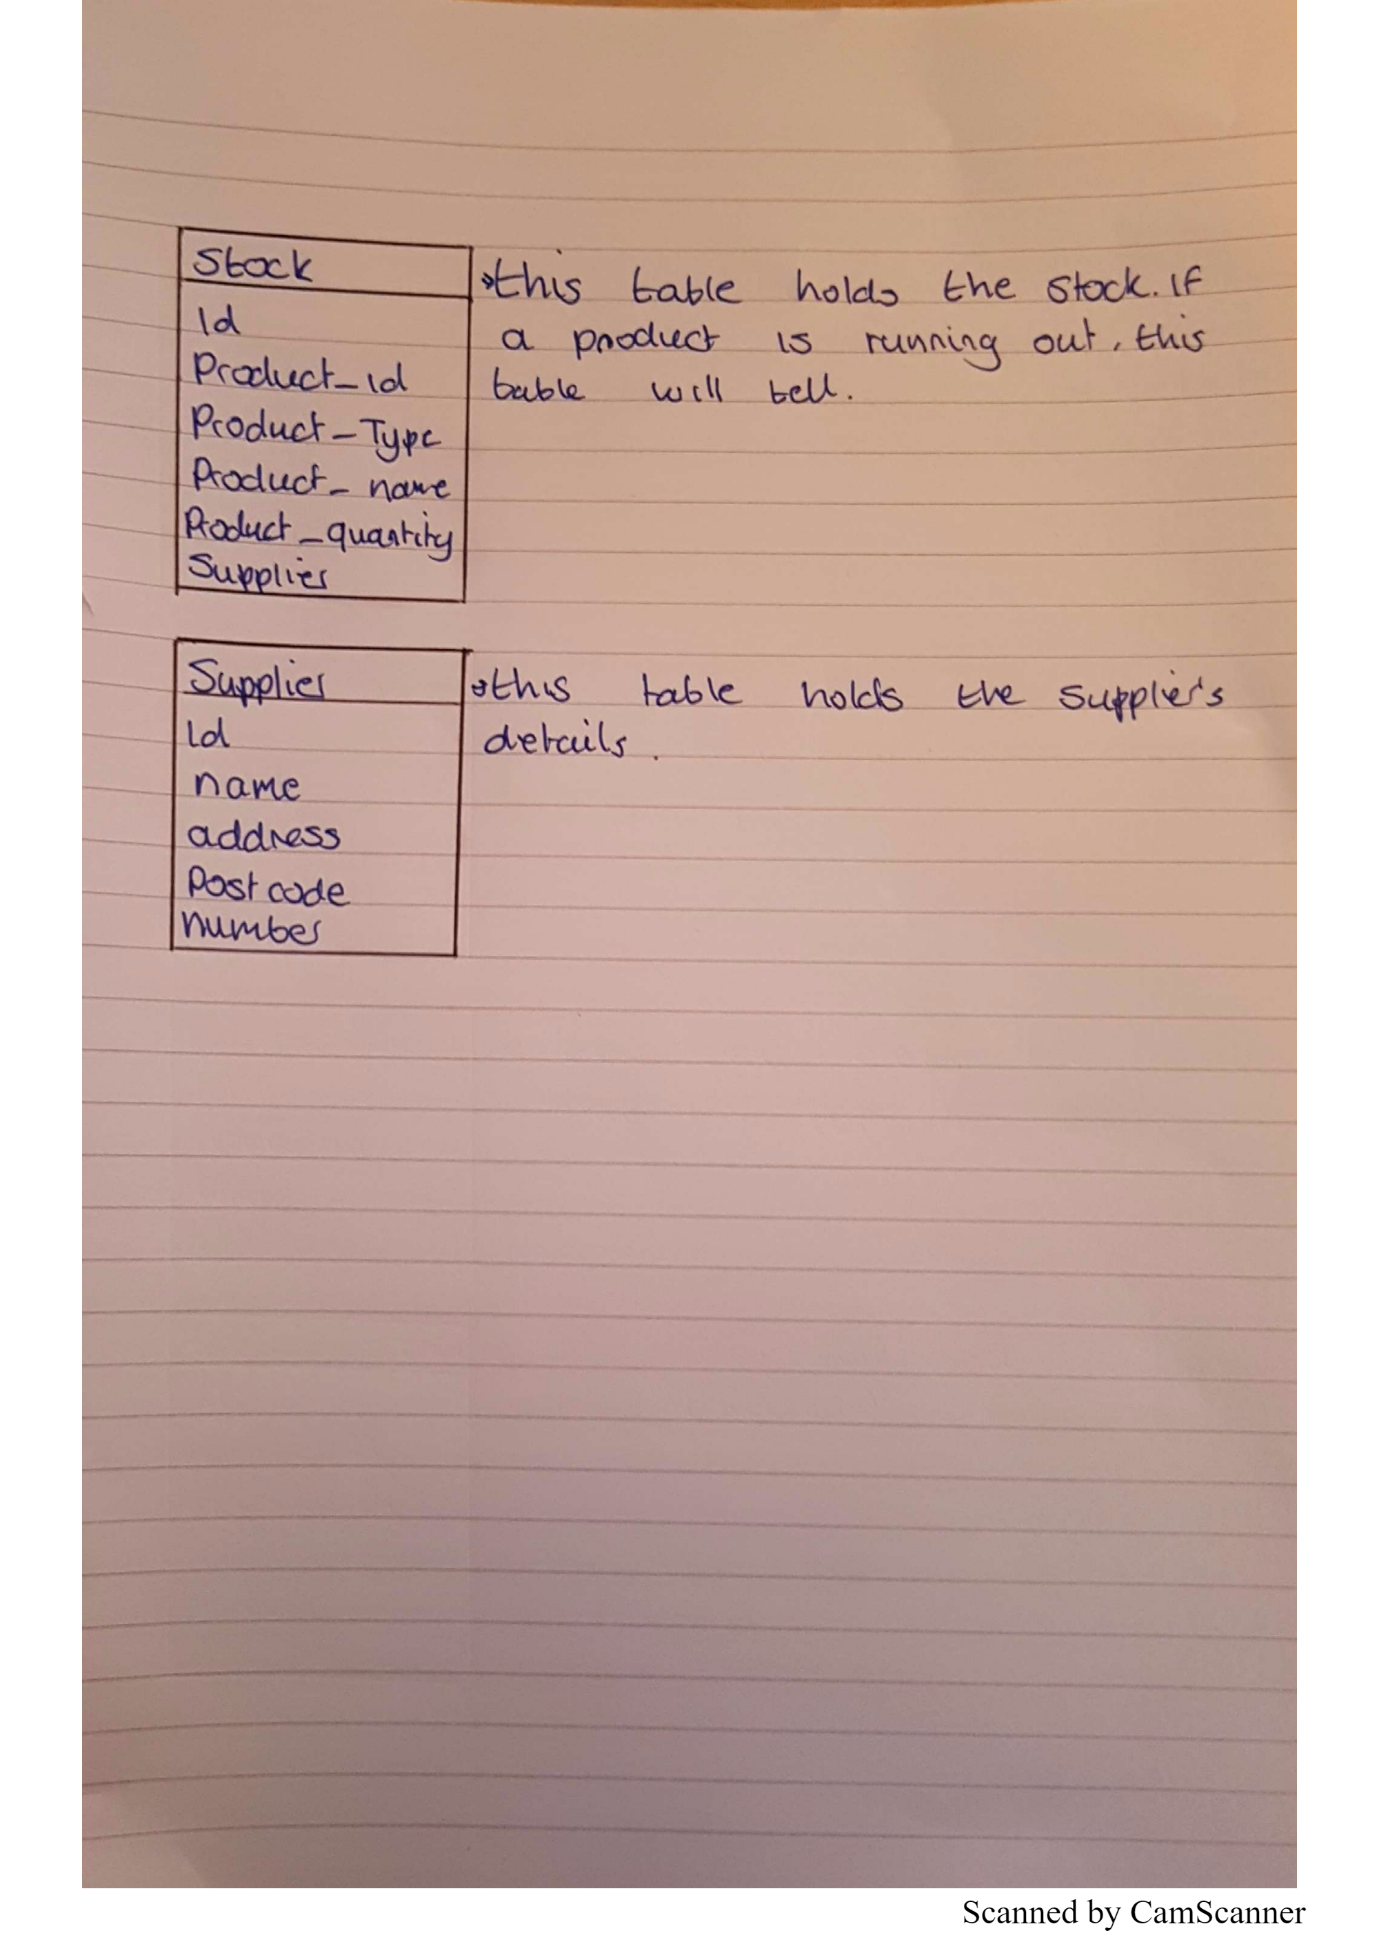 Stock
Id
Product_id
Product_Type
Product_name
Product_quantity
Supplier
this table holds the stock. If
a product is running out, this
table will tell.
Supplier
Id
name
address
Postcode
number
this table holds the supplier's
details.
Scanned by CamScanner